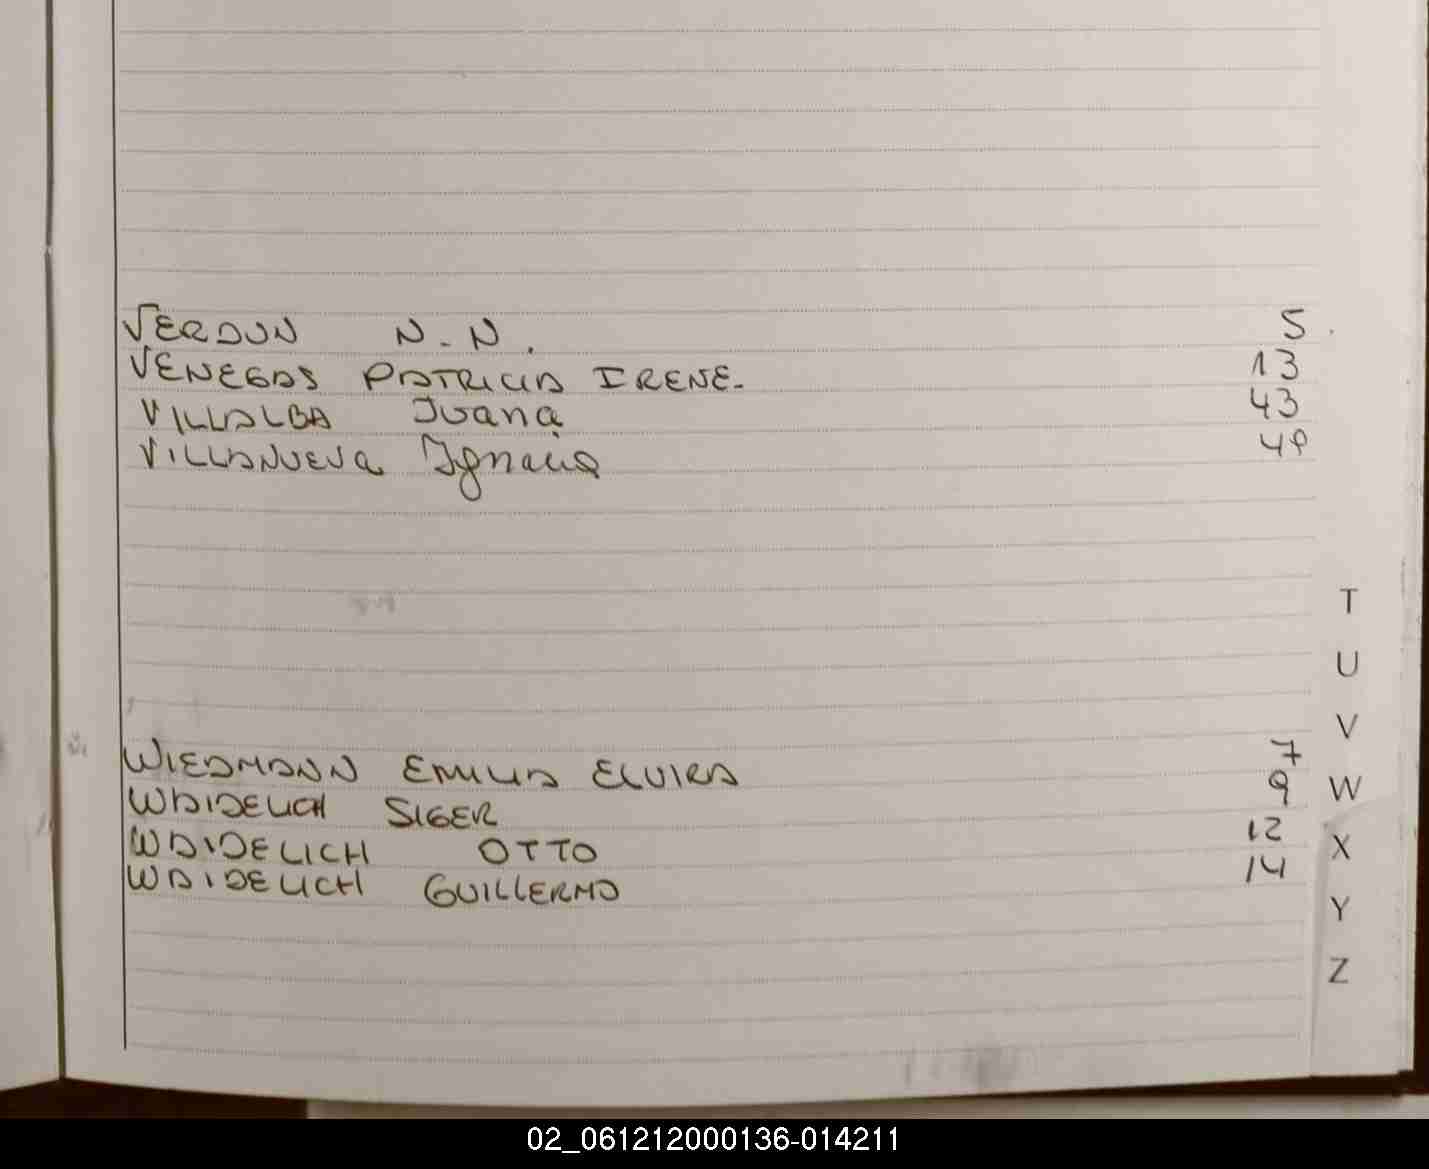 VERDUN N.N. 5
VENEGAS PATRICIA IRENE. 13
VILLALBA Juana 43
VILLANUEVA Ignacia
WIEDMANN EMILIA ELVIRA 7
WAIDELICH SIGER 9
WAIDELICH OTTO 12
WAIDELICH GUILLERMO 14
T
U
V
W
X
Y
Z
02_061212000136-014211